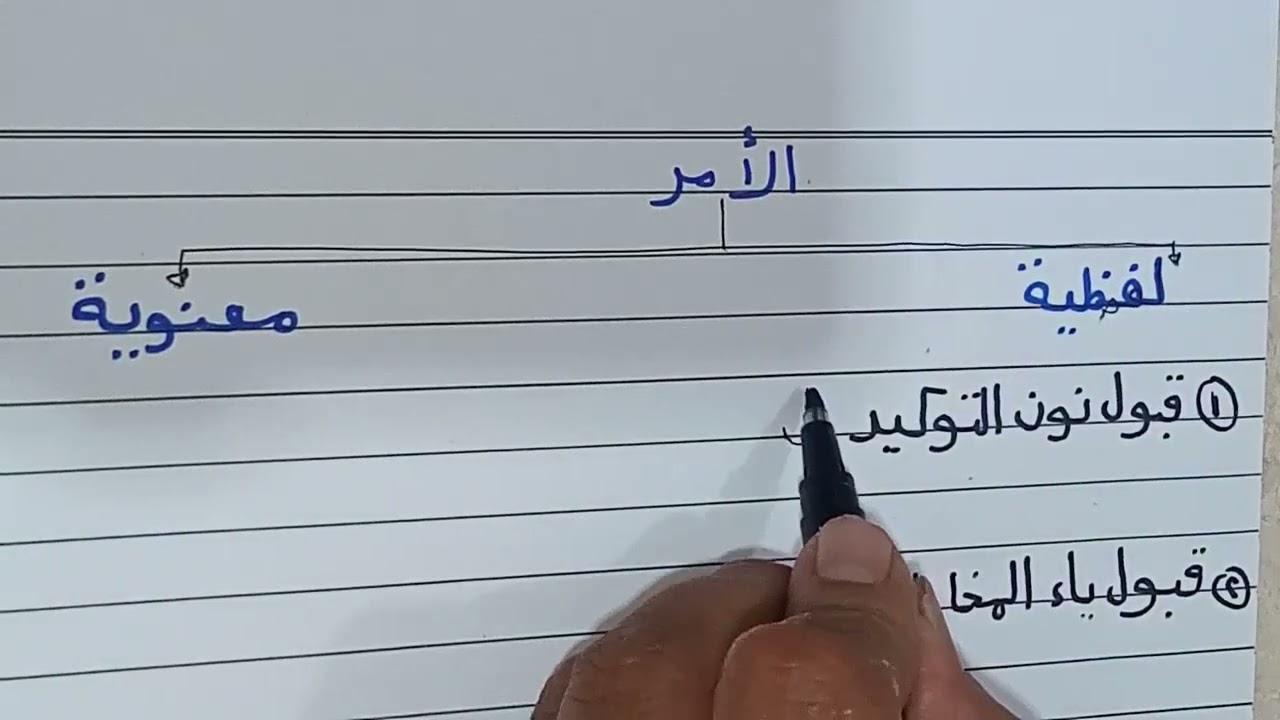 الأمر
لفظية
معنوية
١ قبول نون التوكيد
٢ قبول ياء